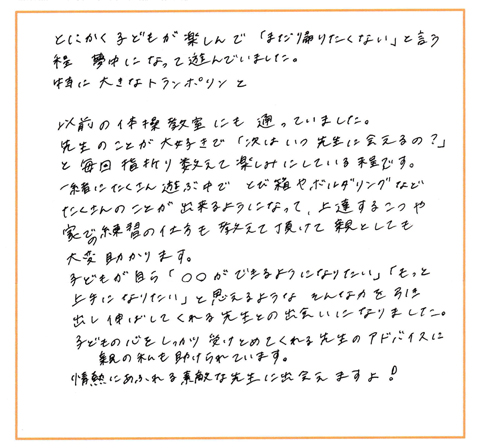 とにかく子どもが楽しんで「まだ帰りたくない」と言う
程 夢中になって遊んでいました。
特に大きなトランポリンと
以前の体操教室にも通っていました。
先生のことが大好きで「次はいつ先生に会えるの?」
と毎回指折り数えて楽しみにしている程です。
一緒にたくさん遊ぶ中で とび箱やボルダリングなど
たくさんのことが出来るようになって、上達するコツや
家での練習の仕方も教えて頂けて親としても
大変助かります。
子どもが自ら「〇〇ができるようになりたい」「もっと
上手になりたい」と思えるような そんな力を引き
出し伸ばしてくれる先生との出会いになりました。
子どもの心をしっかり受けとめてくれる先生のアドバイスに
親の私も助けられています。
情熱にあふれる素敵な先生に出会えますよ!